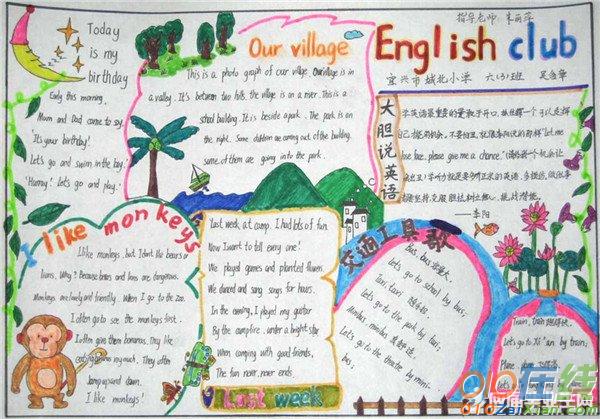 Today
is my
birthday
Early this morning,
Mum and Dad come to say,
"It's your birthday!
Let's go and swim in the bay,
"Hurray! Let's go and play."
Our village
This is a photo graph of our village. Our village is in
a valley. It's between two hills. the village is on a river. This is a
school building. It is beside a park. The park is on
the right. Some children are coming out of the building.
some of them are going into the park.
English club
指导老师
宜兴市城北小学 六(3)班
大胆说英语
学英语最重要的是敢于开口,抓住每一个可以支持
自己练习的机会,不要怕丑,就像李阳说的那样"Let me
lose face, please give me a chance."
坚持,交服胆怯,树立信心,挑战潜能。
——李阳
I like monkeys
I like monkeys, but I don't like bears or
lions, Why? Because bears and lions are dangerous.
Monkeys are lovely and friendly. When I go to the zoo,
I often go to see the monkeys first.
I often give them bananas. They like
eating bananas very much. They often
jump up and down.
I like monkeys!
Last week, at camp, I had lots of fun.
Now I want to tell every one!
We played games and planted flowers.
We danced and sang songs for hours.
In the evening, I played my guitar
By the campfire, under a bright star
When camping with good friends,
The fun never, never ends.
Last week
交通工具歌
Bus, bus
Let's go to school by bus;
Taxi, taxi
Let's go to the park by taxi;
Minibus, minibus
Let's go to the theatre by mini-
bus;
Train, train
Let's go to Xi'an by train;
Plane, plane